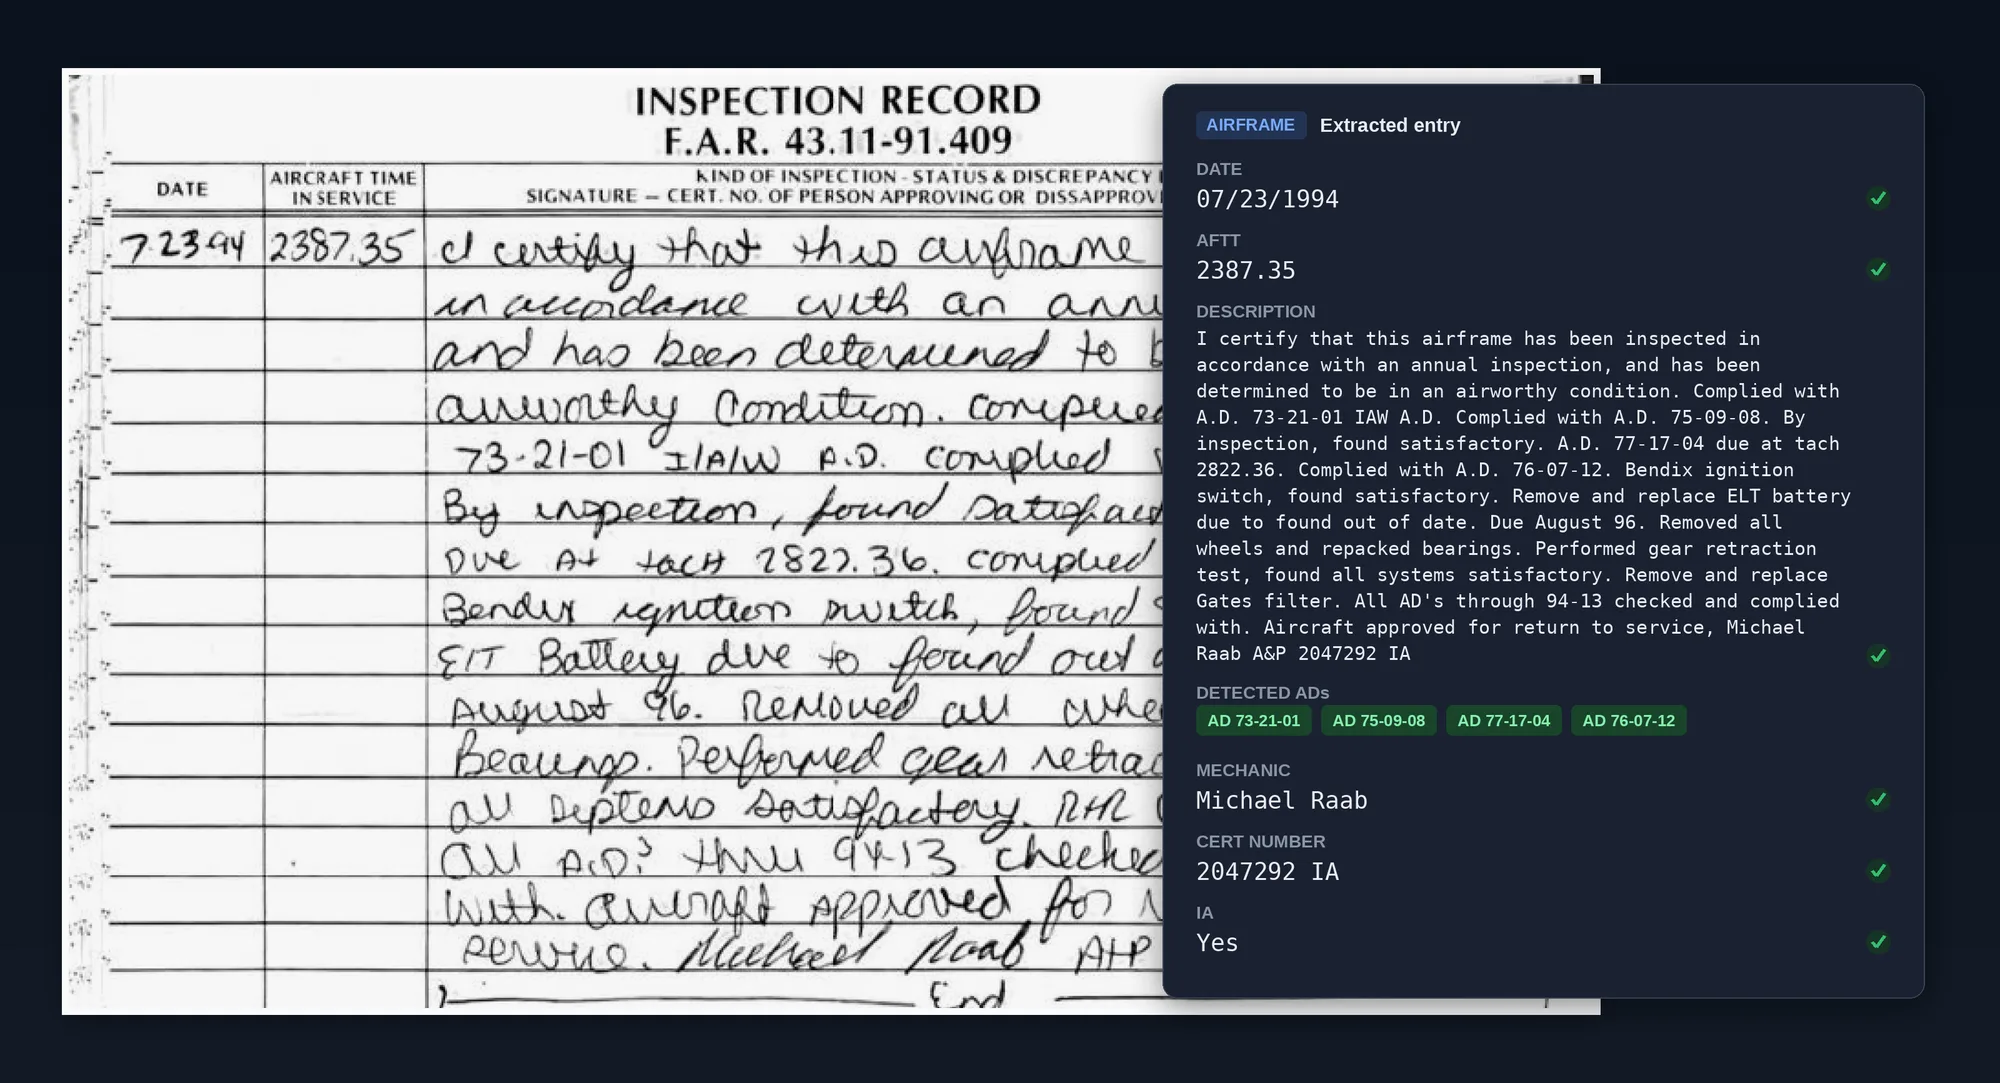 INSPECTION RECORD
F.A.R. 43.11-91.409
DATE
AIRCRAFT TIME
IN SERVICE
KIND OF INSPECTION - STATUS & DISCREPANCY
SIGNATURE — CERT. NO. OF PERSON APPROVING OR DISSAPPROVI
7.23.94 2387.35 I certify that this airframe
in accordance with an annu
and has been determined to b
airworthy Condition. complied
73-21-01 I/A/W A.D. complied
By inspection, found satisfact
Due At tach 2822.36. complied
Bendix ignition switch, found
ElT Battery due to found out
August 96. Removed all whe
Bearings. Performed gear retrac
all systems satisfactory. R+R
all A.D.s thru 94-13 checked
With. aircraft approved for
service. Michael Raab A+P
End
AIRFRAME Extracted entry
DATE
07/23/1994
AFTT
2387.35
DESCRIPTION
I certify that this airframe has been inspected in
accordance with an annual inspection, and has been
determined to be in an airworthy condition. Complied with
A.D. 73-21-01 IAW A.D. Complied with A.D. 75-09-08. By
inspection, found satisfactory. A.D. 77-17-04 due at tach
2822.36. Complied with A.D. 76-07-12. Bendix ignition
switch, found satisfactory. Remove and replace ELT battery
due to found out of date. Due August 96. Removed all
wheels and repacked bearings. Performed gear retraction
test, found all systems satisfactory. Remove and replace
Gates filter. All AD's through 94-13 checked and complied
with. Aircraft approved for return to service, Michael
Raab A&P 2047292 IA
DETECTED ADs
AD 73-21-01 AD 75-09-08 AD 77-17-04 AD 76-07-12
MECHANIC
Michael Raab
CERT NUMBER
2047292 IA
IA
Yes